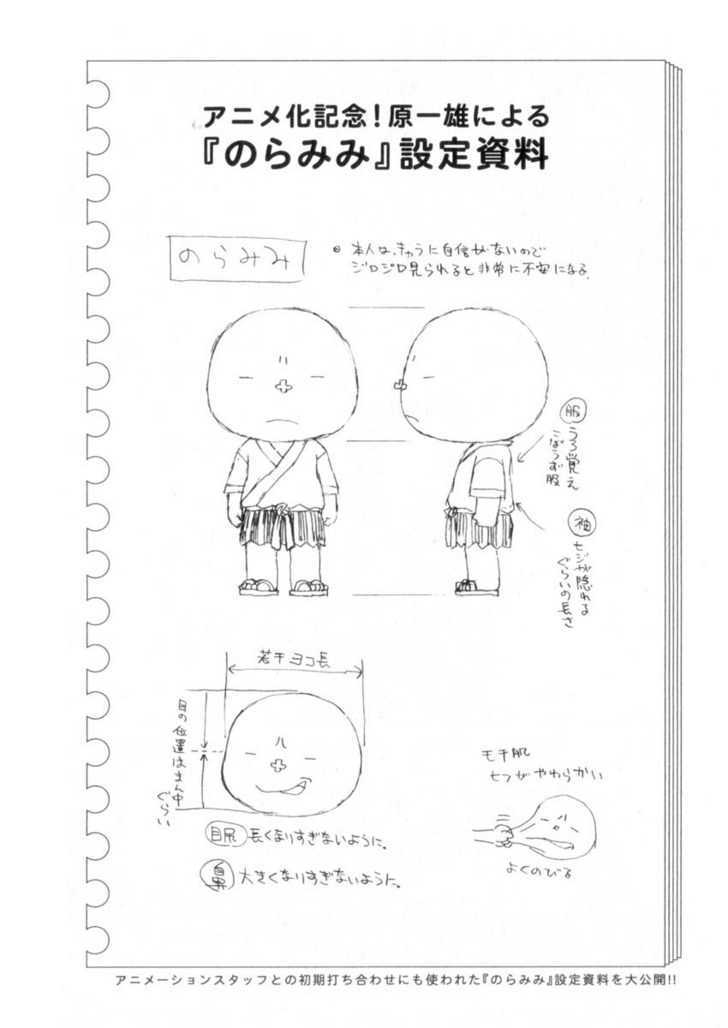 アニメ化記念!原一雄による
『のらみみ』設定資料
のらみみ
本人は、きゅうに自信がないので
ジロジロ見られると非常に不安になる。
服
うろ覚え
こぼうず服
袖
ヒジが隠れる
ぐらいの長さ
若干ヨコ長
目の位置はまん中
ぐらい
目尻 長くなりすぎないように。
鼻 大きくなりすぎないように。
モチ肌
ヒフがやわらかい
よくのびる
アニメーションスタッフとの初期打ち合わせにも使われた『のらみみ』設定資料を大公開!!